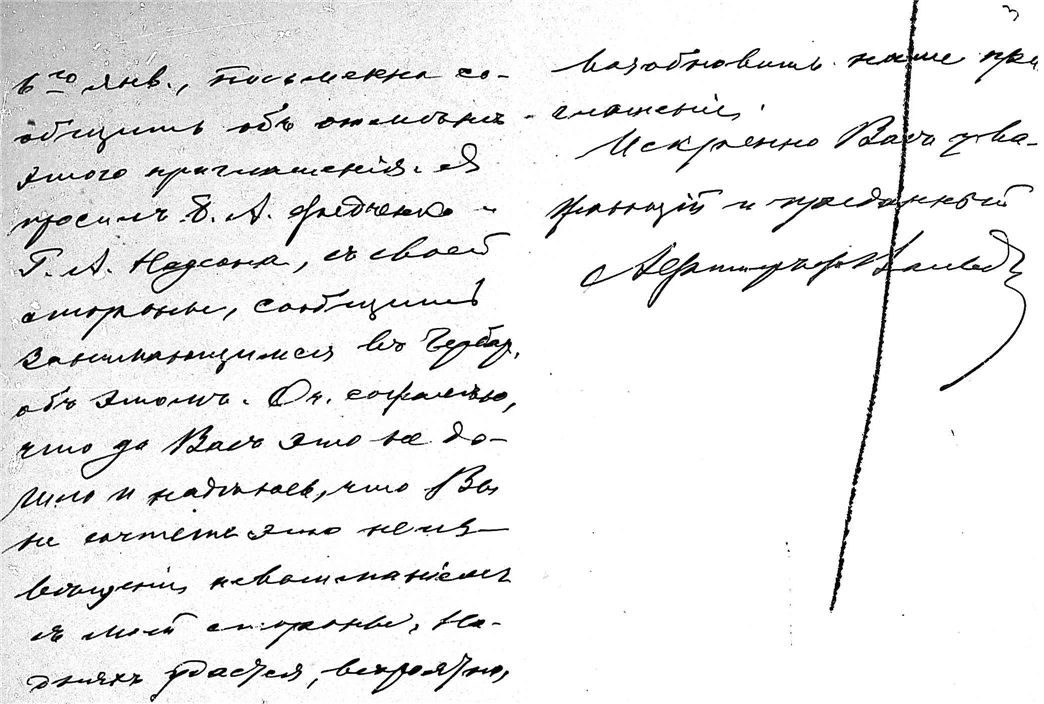 6го янв., письменно со-
общить объ отмѣнѣ
этого приглашенія. Я
просилъ Б. А. Федченко и
Г. А. Надсона, съ своей
стороны, сообщить
занимающимся въ Гербар.
объ этомъ. Оч. сожалѣю,
что до Васъ это не до-
шло и надѣюсь, что Вы
не сочтете это неиз-
вѣщеніе невниманіемъ
съ моей стороны. На-
дняхъ удастся, вѣроятно,
3
возобновить наше при-
глашеніе.
Искренно Васъ ува-
жающій и преданный